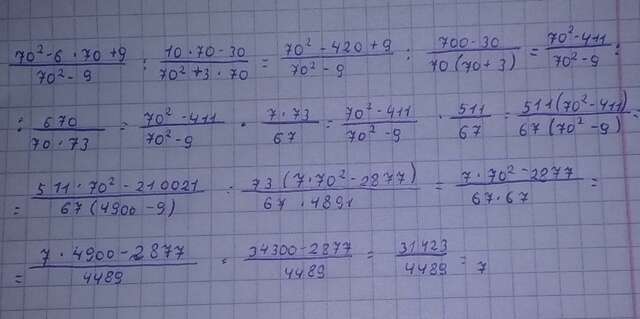 (70² - 6 · 70 + 9)/(70² - 9) : (10 · 70 - 30)/(70² + 3 · 70) = (70² - 420 + 9)/(70² - 9) : (700 - 30)/(70(70 + 3)) = (70² - 411)/(70² - 9) :
: 670/(70 · 73) = (70² - 411)/(70² - 9) · (7 · 73)/67 = (70² - 411)/(70² - 9) · 511/67 = (511(70² - 411))/(67(70² - 9)) =
= (511 · 70² - 210021)/(67(4900 - 9)) = (73(7 · 70² - 2877))/(67 · 4891) = (7 · 70² - 2877)/(67 · 67) =
= (7 · 4900 - 2877)/4489 = (34300 - 2877)/4489 = 31423/4489 = 7